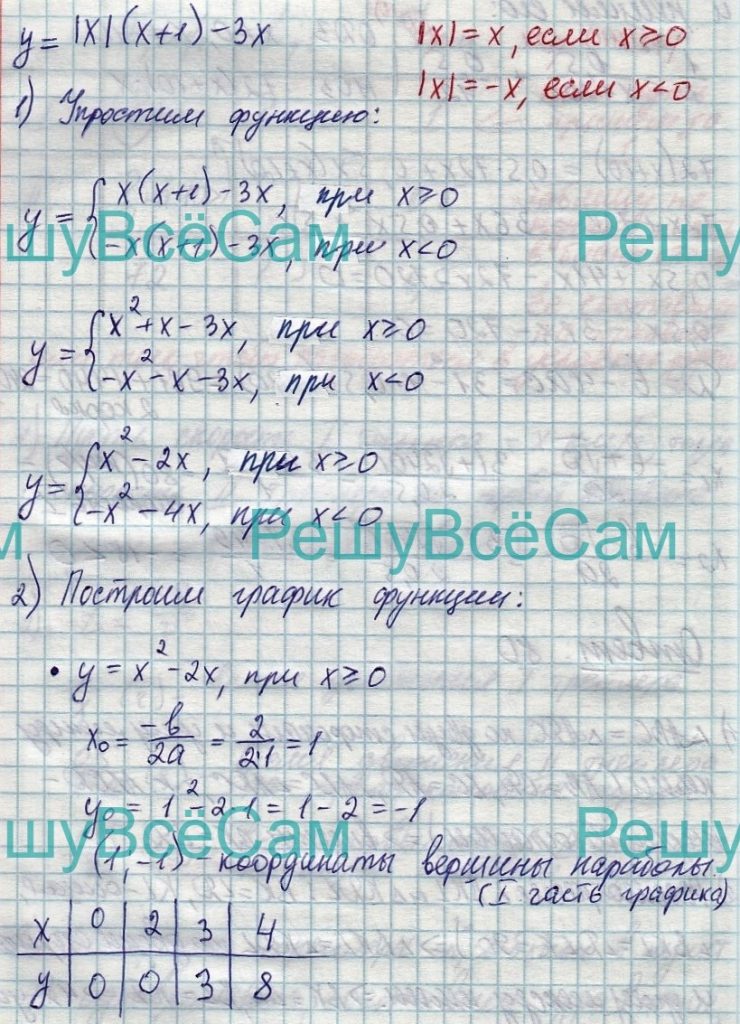 y = |x|(x+1) - 3x
|x| = x, если x ≥ 0
|x| = -x, если x < 0
1) Упростим функцию:
y = { x(x+1) - 3x, при x ≥ 0
-x(x+1) - 3x, при x < 0
шуВсёСам Решу
y = { x² + x - 3x, при x ≥ 0
-x² - x - 3x, при x < 0
y = { x² - 2x, при x ≥ 0
-x² - 4x, при x < 0
м РешуВсёСам
2) Построим график функции:
• y = x² - 2x, при x ≥ 0
x₀ = -b/2a = 2/2·1 = 1
y₀ = 1² - 2·1 = 1 - 2 = -1
шуВсёСам Решу
(1, -1) - координаты вершины параболы.
(I часть графика)
x | 0 | 2 | 3 | 4
y | 0 | 0 | 3 | 8